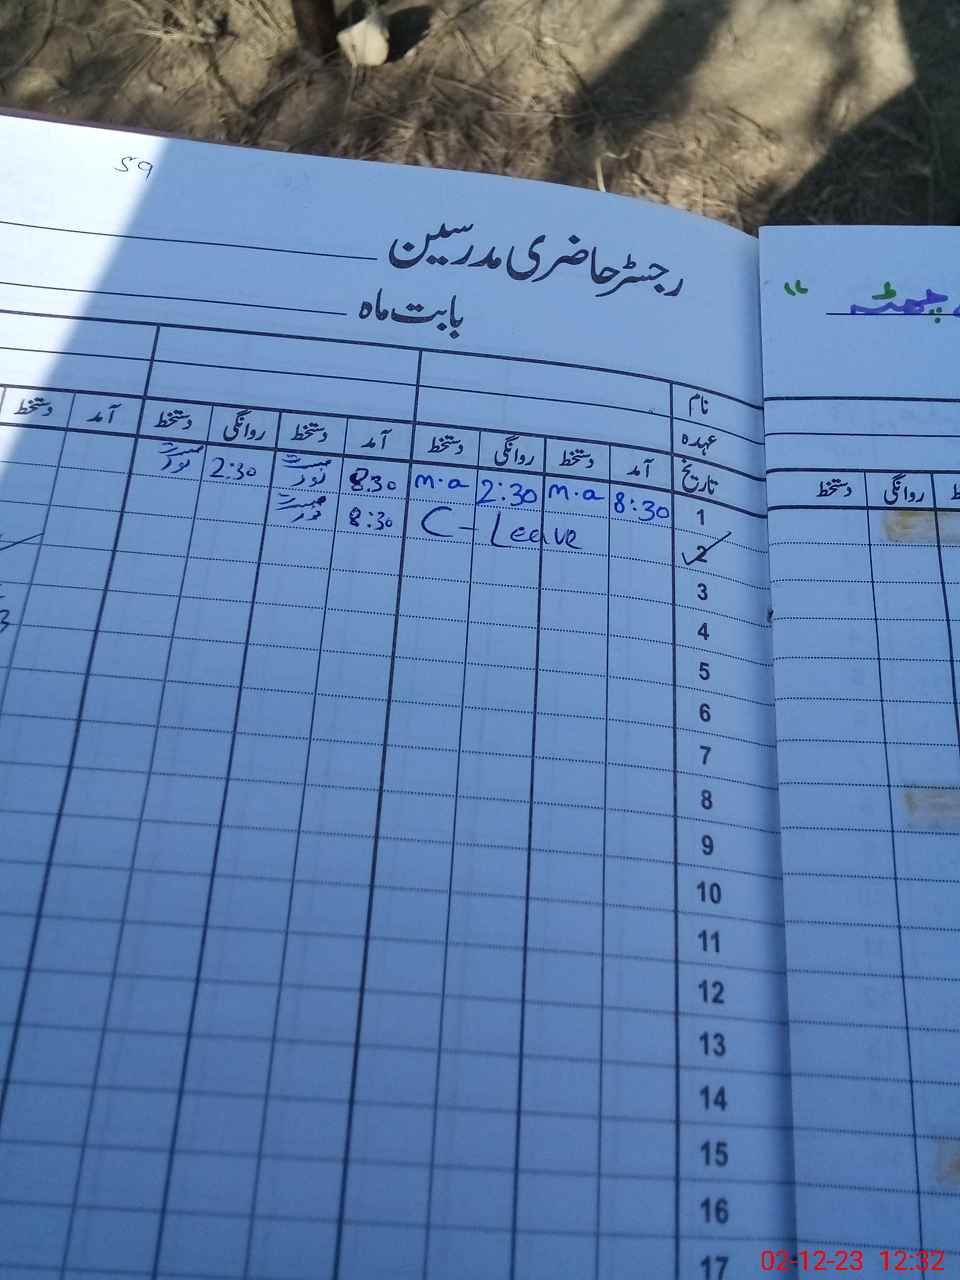 59
رجسٹر حاضری مدرسین
بابت ماہ
نام
عہدہ
تاریخ آمد دستخط روانگی دستخط آمد دستخط روانگی دستخط آمد دستخط
1 8:30 m.a 2:30 m.a 8:30 2:30
2 C - Leave 8:30
3
4
5
6
7
8
9
10
11
12
13
14
15
16
17
روانگی دستخط
02-12-23 12:32